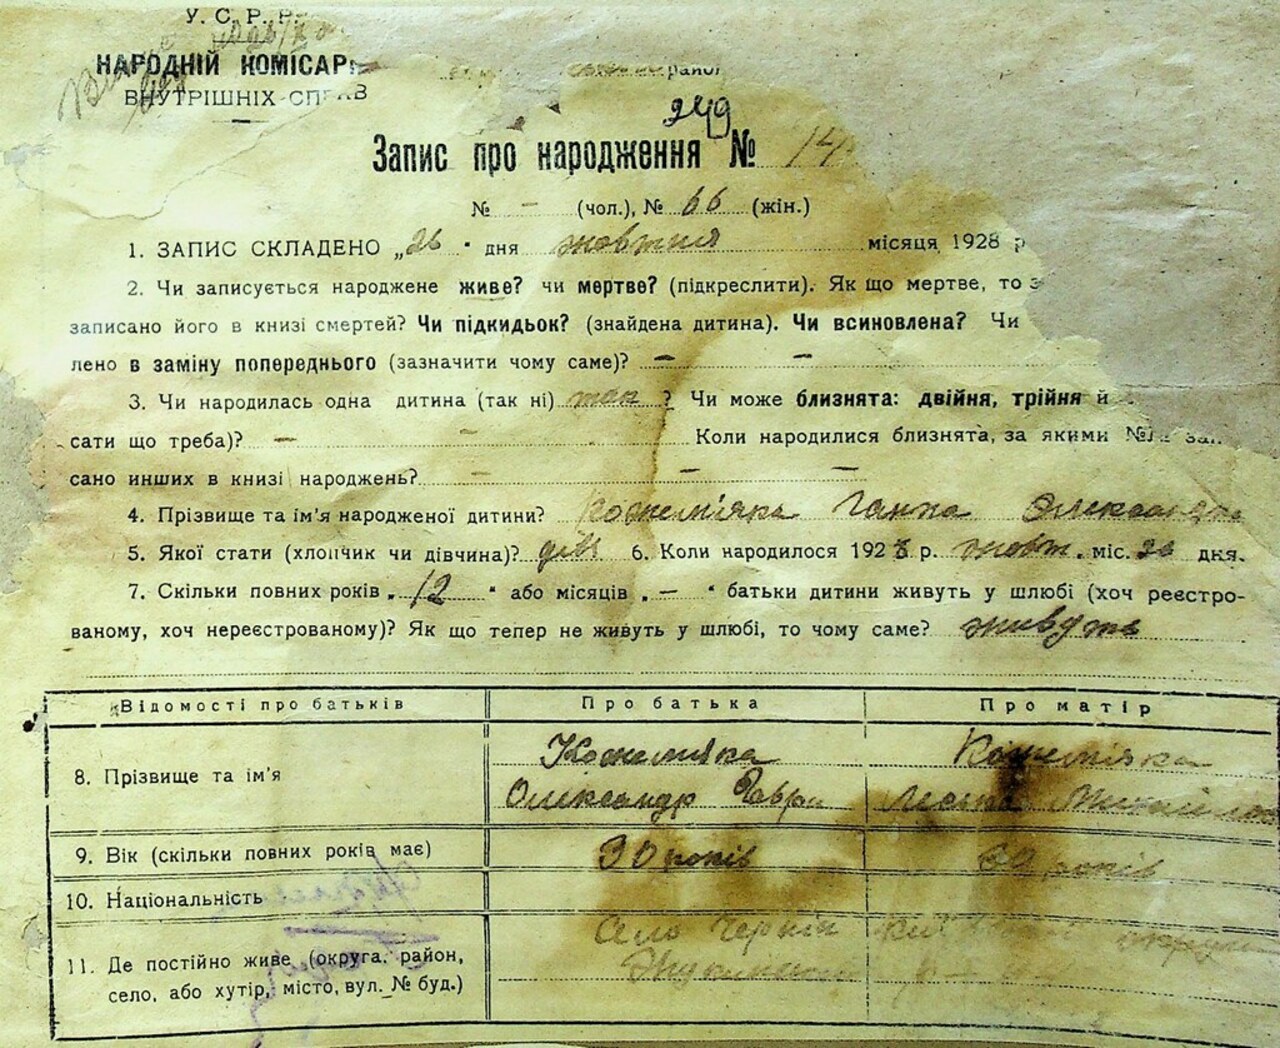 У. С. Р. Р.
НАРОДНІЙ КОМІСАР
ВНУТРІШНІХ СПРАВ
район
249
Запис про народження № 14
№ - (чол.), № 66 (жін.)
1. ЗАПИС СКЛАДЕНО „26" дня жовтня місяця 1928 р
2. Чи записується народжене живе? чи мертве? (підкреслити). Як що мертве, то з
записано його в книзі смертей? Чи підкидьок? (знайдена дитина). Чи всиновлена? Чи
лено в заміну попереднього (зазначити чому саме)? - -
3. Чи народилась одна дитина (так ні) так ? Чи може близнята: двійня, трійня й
сати що треба)? - - Коли народилися близнята, за якими №№ зап
сано инших в книзі народжень? - - -
4. Прізвище та ім'я народженої дитини? Кожем'яка Ганна Олександр
5. Якої стати (хлопчик чи дівчина)? дівч 6. Коли народилося 1928 р. жовт. міс. 20 дня.
7. Скільки повних років „12" або місяців „-" батьки дитини живуть у шлюбі (хоч реєстро-
ваному, хоч нереєстрованому)? Як що тепер не живуть у шлюбі, то чому саме? живуть
Відомості про батьків Про батька Про матір
8. Прізвище та ім'я Кожемяка Олександр Гаври Кожемяка
9. Вік (скільки повних років має) 30 років років
10. Національність
11. Де постійно живе (округа, район,
село, або хутір, місто, вул. № буд.) Село округи